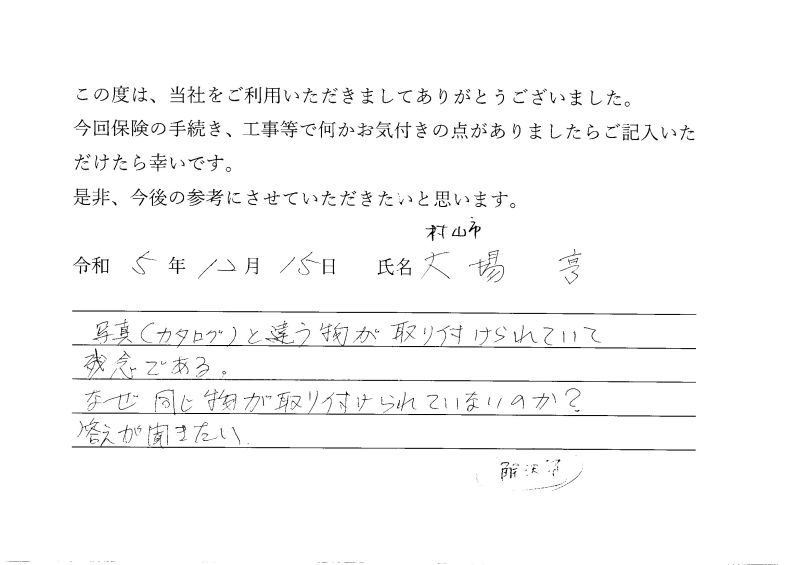 この度は、当社をご利用いただきましてありがとうございました。
今回保険の手続き、工事等で何かお気付きの点がありましたらご記入いた
だけたら幸いです。
是非、今後の参考にさせていただきたいと思います。
村山市
令和 5 年 12 月 15 日 氏名 大場 亨
写真(カタログ)と違う物が取り付けられていて
残念である。
なぜ同じ物が取り付けられていないのか?
答えが聞きたい
解決済